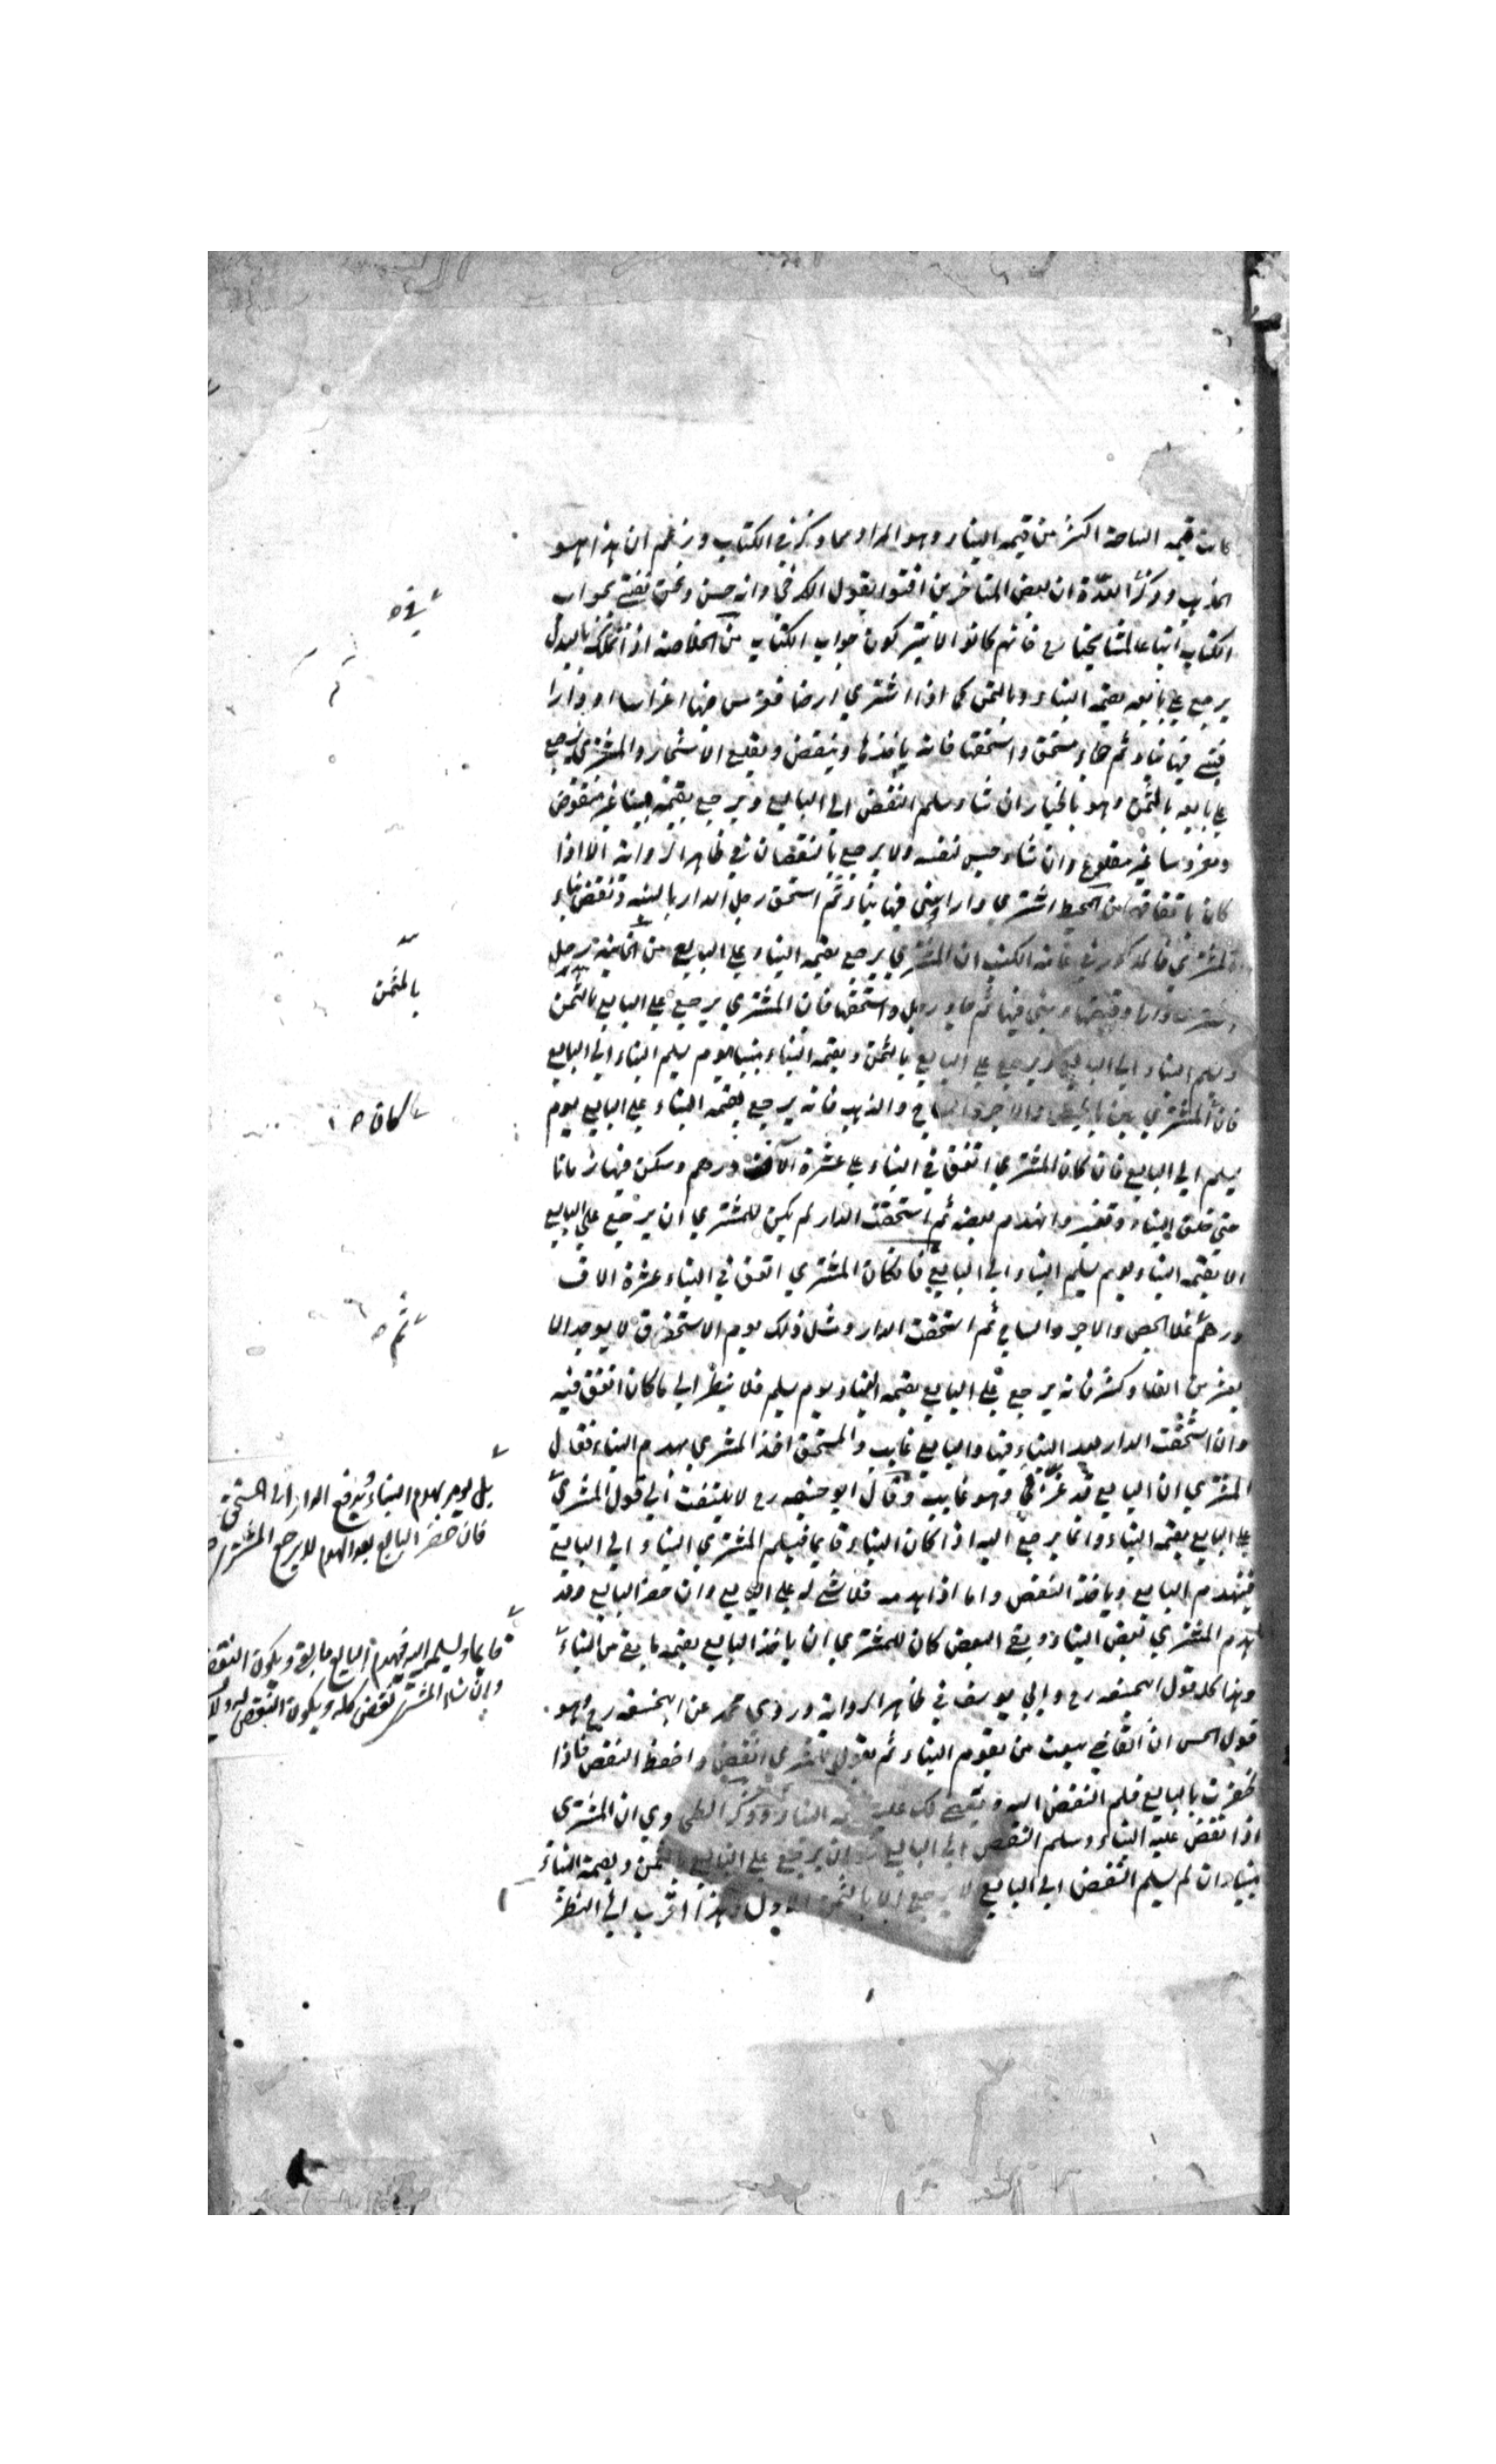 كانت قيمة الساحة اكثر من قيمة البناء وهو المراد مما ذكر في الكتاب وزعم ان هذا هو
المذهب وذكر في العدة ان بعض المتاخرين افتوا بقول الكرخي وانه حسن ونحن نفتي بجواب
الكتاب اتباعا لمشايخنا رح فانهم كانوا لا يتركون جواب الكتاب من الخلاصة اذا تملكه بالبدل
يرجع على بايعه بقيمة البناء وبالثمن كما اذا اشترى ارضا فغرس فيها اغراسا او دارا
فبنى فيها بناء ثم جاء مستحق واستحقها فانه ياخذها وينقض ويقلع الاشجار والمشتري يرجع
على بايعه بالثمن وهو بالخيار ان شاء سلم النقض الى البايع ويرجع بقيمته مبنيا غير منقوض
ومغروسا غير مقلوع وان شاء حبس لنفسه ولا يرجع بالنقصان في ظاهر الرواية الا اذا
كان باتفاقهما من المحيط اشترى دارا وبنى فيها بناء ثم استحق رجل الدار بالبينة ونقض بناء
المشتري فالمذكور في عامة الكتب ان المشتري يرجع بقيمة البناء على البايع من الخانية رجل
اشترى دارا وقبضها وبنى فيها ثم جاء رجل واستحقها فان المشتري يرجع على البايع بالثمن
ويسلم البناء الى البايع ويرجع على البايع بالثمن وبقيمة البناء مبنيا يوم يسلم البناء الى البايع
فان المشتري بنى بالجص والاجر والساج والذهب فانه يرجع بقيمة البناء على البايع يوم
يسلم الى البايع فان كان المشتري انفق في البناء على عشرة آلاف درهم وسكن فيها زمانا
حتى خلق البناء وتغير وانهدم بعضه ثم استحقت الدار لم يكن للمشتري ان يرجع على البايع
الا بقيمة البناء يوم يسلم البناء الى البايع فان كان المشتري انفق في البناء عشرة الاف
درهم ثم غلا الجص والاجر والساج ثم استحقت الدار ومثل ذلك يوم الاستحقاق لا يوجد الا
بعشرين الفا وكثر فانه يرجع على البايع بقيمة البناء يوم يسلم فلا ينظر الى ما كان انفق فيه
وان استحقت الدار بعد البناء فيها والبايع غايب والمستحق اخذ المشتري بهدم البناء فقال
المشتري ان البايع قد غرني وهو غايب وقال ابو حنيفه رح لا يلتفت الى قول المشتري
على البايع بقيمة البناء وانما يرجع اليه اذا كان البناء قايما فيسلم المشتري البناء الى البايع
فيهدم البايع وياخذ النقض واما اذا هدمه فلا شئ له على البايع وان حضر البايع وقد
هدم المشتري بعض البناء وبقي البعض كان للمشتري ان ياخذ البايع بقيمة ما بقي من البناء
وهذا كله قول ابي حنيفه رح وابي يوسف في ظاهر الرواية وروى محمد عن ابي حنيفه رح وهو
قول الحسن ان القاضي يبعث من يقوم البناء ثم يقول للمشتري انقض واحفظ النقض فاذا
ظفرت بالبايع فسلم النقض اليه ويقضي لك عليه البناء وذكر الطحاوي ان المشتري
اذا نقض عليه البناء وسلم النقض الى البايع ان يرجع على البايع بالثمن وبقيمة البناء
مبنيا وان لم يسلم النقض الى البايع لا يرجع الا بالثمن الاول وهذا اقرب الى النظر
في ه
بالثمن
كان ه
ثم ه
بل يومر بهدم البناء ويدفع الدار الى المستحق
فان حضر البايع بعد الهدم لا يرجع المشتري
قايما ويسلمه اليه فيهدم البايع ما بقي ويكون النقض
وان شاء المشتري نقض كله ويكون النقض له